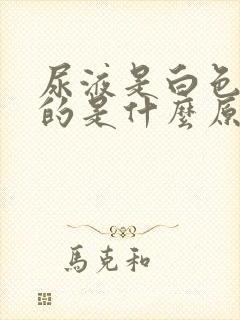 尿液是白色
的是什麼原
馬克和